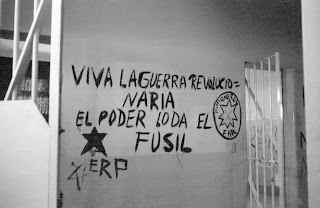 VIVA LA GUERRA REVOLUCIO=
NARIA
EL PODER LO DA EL
FUSIL
ERP